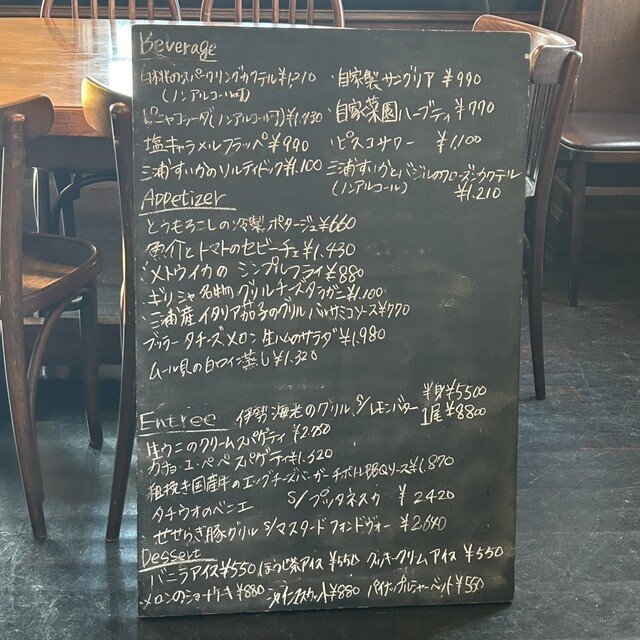 Beverage
白桃のスパークリングカクテル ¥1,210
(ノンアルコール可)
・自家製サングリア ¥990
ピニャコラーダ(ノンアルコール可) ¥1,430
・自家菜園ハーブティ ¥770
・塩キャラメルフラッペ ¥990
・ピスコサワー ¥1,100
三浦すいかのソルティドック ¥1,100
三浦すいかとバジルのフローズンカクテル
(ノンアルコール) ¥1,210
Appetizer
とうもろこしの冷製ポタージュ ¥660
魚介とトマトのセビーチェ ¥1,430
メトウイカのシンプルフライ ¥880
ギリシャ名物グリルチーズサガナキ ¥1,100
三浦産イタリア茄子のグリルバルサミコソース ¥770
ブッラータチーズメロン生ハムのサラダ ¥1,980
ムール貝の白ワイン蒸し ¥1,320
Entree
伊勢海老のグリル S/レモンバター
半身 ¥5500
1尾 ¥8800
生ウニのクリームスパゲティ
カチョ・エ・ペペスパゲティ ¥1,320
粗挽き国産牛のエッグチーズバーガーチポトレBBQソース ¥1,870
タチウオのベニエ S/プッタネスカ ¥2420
・せせらぎ豚グリル S/マスタードフォンドヴォー ¥2,640
Dessert
バニラアイス ¥550
ほうじ茶アイス ¥550
クッキークリームアイス ¥550
メロンのショートケーキ ¥880
¥880
パイナップルシャーベット ¥550